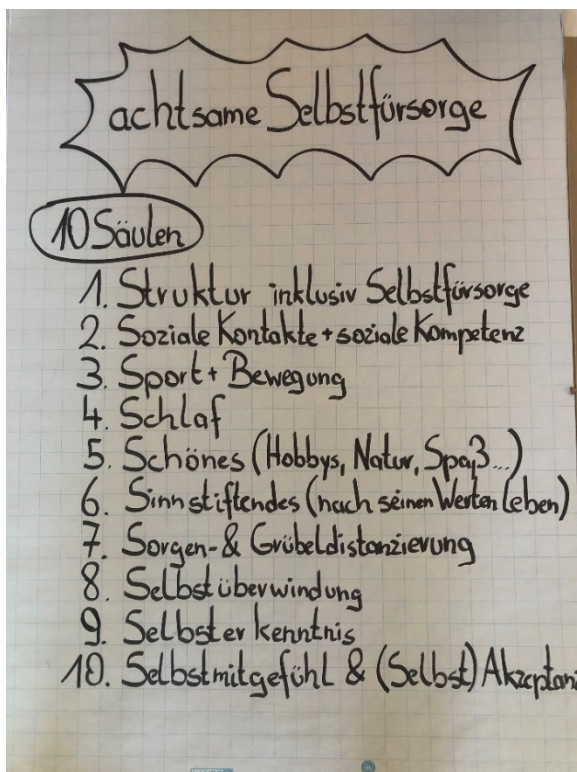 achtsame Selbstfürsorge
10 Säulen
1. Struktur inklusiv Selbstfürsorge
2. Soziale Kontakte + soziale Kompetenz
3. Sport + Bewegung
4. Schlaf
5. Schönes (Hobbys, Natur, Spaß...)
6. Sinnstiftendes (nach seinen Werten leben)
7. Sorgen- & Grübeldistanzierung
8. Selbstüberwindung
9. Selbsterkenntnis
10. Selbstmitgefühl & (Selbst) Akzeptanz